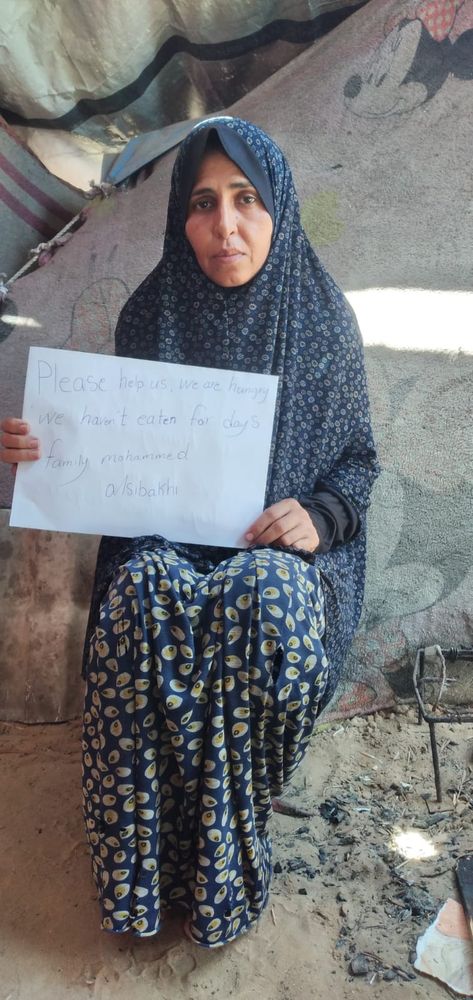 Please help us, we are hungry
we haven't eaten for days
family mohammed
alsibakhi